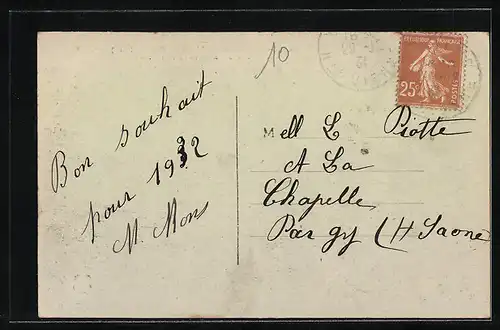 10
Bon souhait
pour 1932
M. Mons
Mell L Piotte
A La
Chapelle
Par gy (H Saone
REPUBLIQUE FRANÇAISE
25c
POSTES